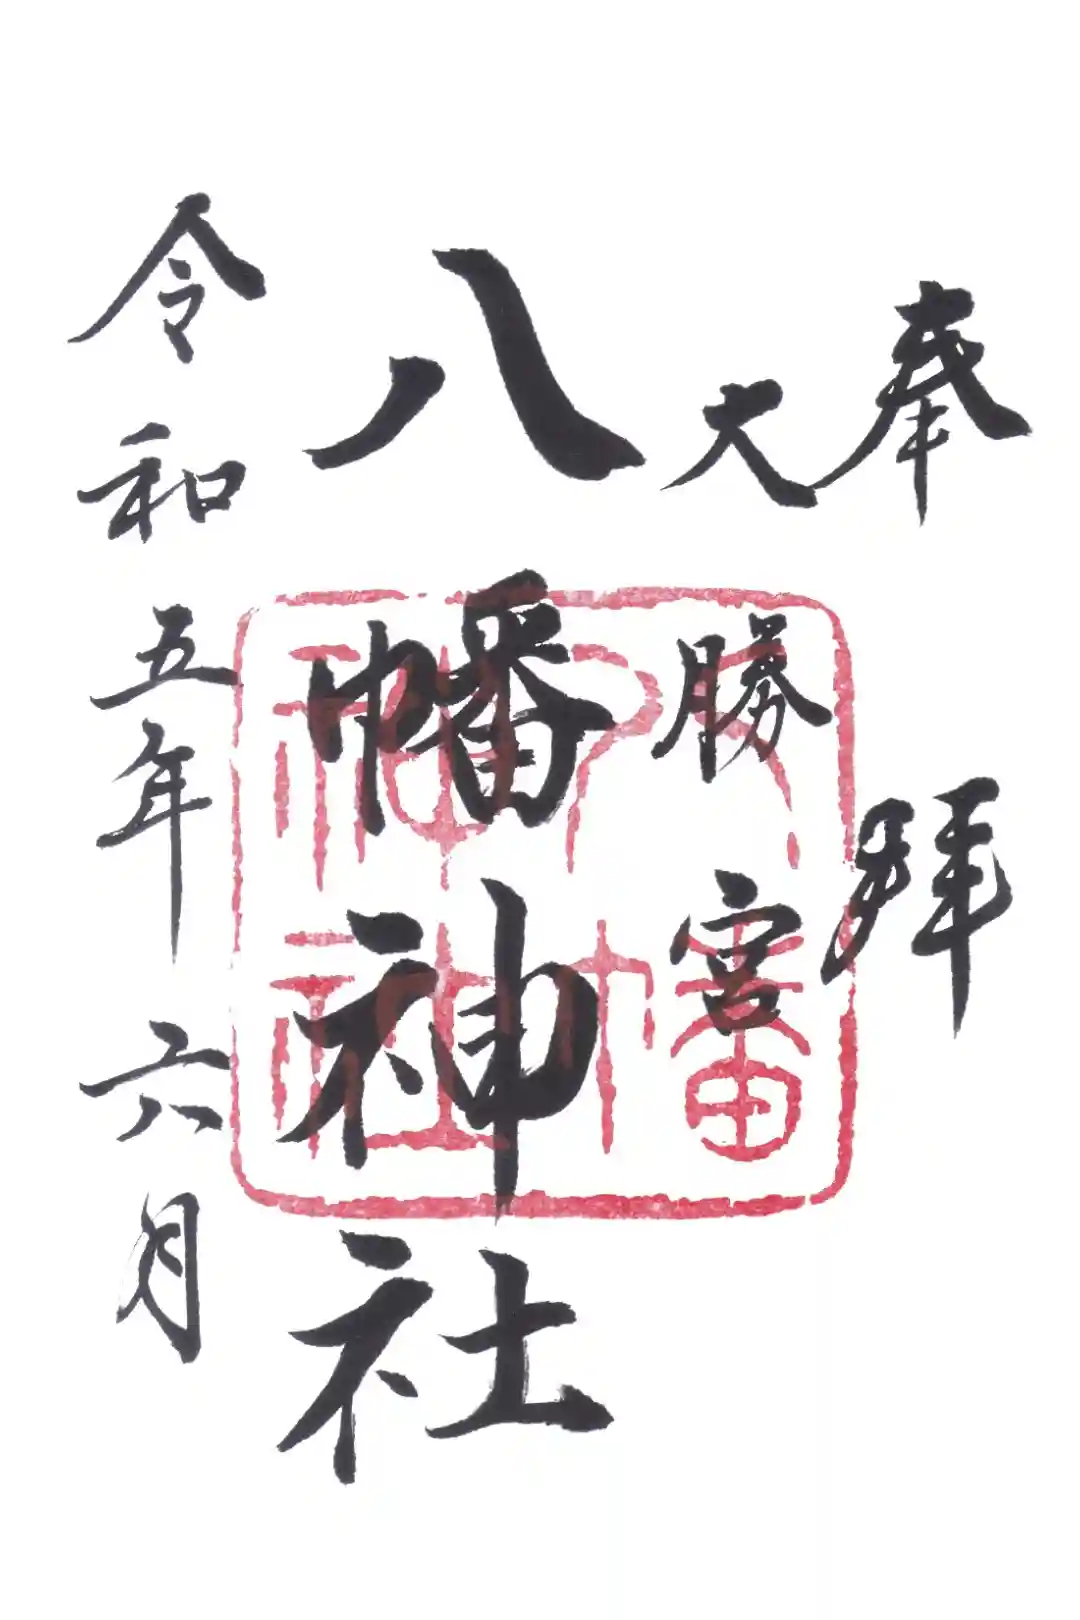 奉拝
大勝宮
八幡神社
令和五年六月
八幡神社